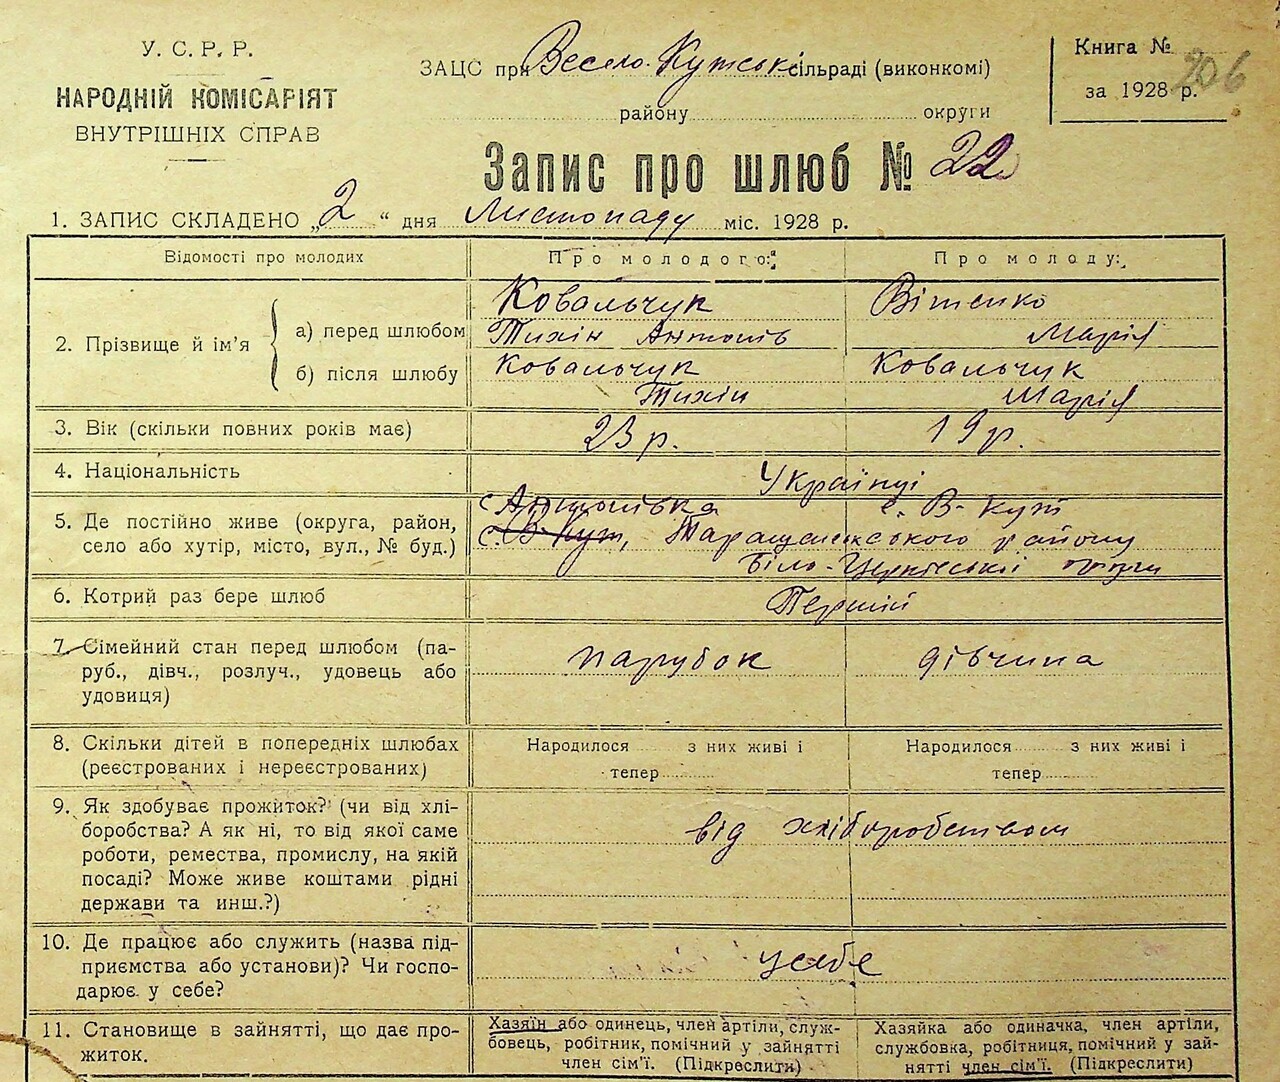 У. С. Р. Р.
НАРОДНІЙ КОМІСАРІЯТ
ВНУТРІШНІХ СПРАВ
ЗАЦС при Весело-Кутські сільраді (виконкомі)
району округи
Книга №
за 1928 р.
206
Запис про шлюб № 22
1. ЗАПИС СКЛАДЕНО „2“ дня Листопаду міс. 1928 р.
Відомості про молодих
Про молодого:
Про молоду:
2. Прізвище й ім’я
а) перед шлюбом
Ковальчук
Тихін Антонів
Вітенко
Марія
б) після шлюбу
Ковальчук
Тихін
Ковальчук
Марія
3. Вік (скільки повних років має)
23 р.
19 р.
4. Національність
Українці
5. Де постійно живе (округа, район,
село або хутір, місто, вул., № буд.)
с. Антонівка
с. В-Кут
с. В-Кут, Таращанського району
Біло-Церківської округи
6. Котрий раз бере шлюб
Перший
7. Сімейний стан перед шлюбом (па-
руб., дівч., розлуч., удовець або
удовиця)
парубок
дівчина
8. Скільки дітей в попередніх шлюбах
(реєстрованих і нереєстрованих)
Народилося з них живі і
тепер
Народилося з них живі і
тепер
9. Як здобуває прожиток? (чи від хлі-
боробства? А як ні, то від якої саме
роботи, ремества, промислу, на якій
посаді? Може живе коштами рідні
держави та инш.?)
від хліборобством
10. Де працює або служить (назва під-
приємства або установи)? Чи госпо-
дарює у себе?
у себе
11. Становище в зайнятті, що дає про-
житок.
Хазяїн або одинець, член артіли, служ-
бовець, робітник, помічний у зайнятті
член сім’ї. (Підкреслити)
Хазяйка або одиначка, член артіли,
службовка, робітниця, помічний у зай-
нятті член сім’ї. (Підкреслити)